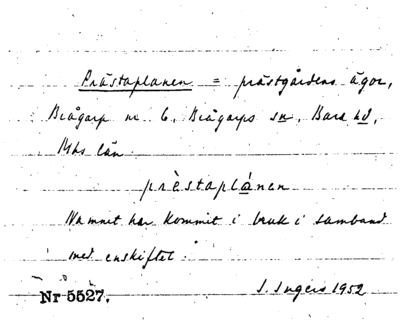 Prästaplanen = prästgårdens ägor,
Brågarp nr 6, Brågarps sn, Bara hd,
Mhs län.
prèstaplánen
Namnet har kommit i bruk i samband
med enskiftet.
I. Ingers 1952
Nr 5527.